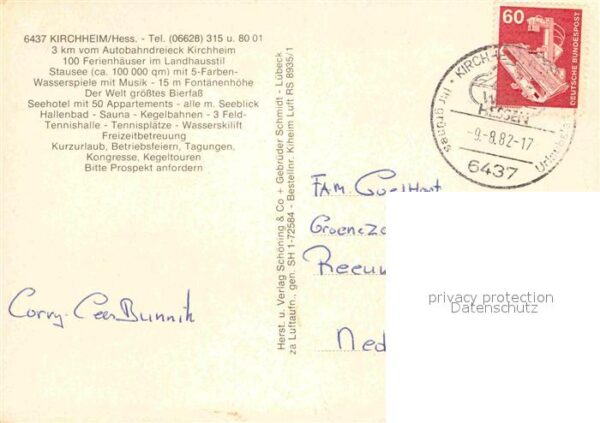 6437 KIRCHHEIM/Hess. - Tel. (06628) 315 u. 80 01
3 km vom Autobahndreieck Kirchheim
100 Ferienhäuser im Landhausstil
Stausee (ca. 100 000 qm) mit 5-Farben-
Wasserspiele mit Musik - 15 m Fontänenhöhe
Der Welt größtes Bierfaß
Seehotel mit 50 Appartements - alle m. Seeblick
Hallenbad - Sauna - Kegelbahnen - 3 Feld-
Tennishalle - Tennisplätze - Wasserskilift
Freizeitbetreuung
Kurzurlaub, Betriebsfeiern, Tagungen,
Kongresse, Kegeltouren
Bitte Prospekt anfordern
Corry-Cees Bunnik
Herst. u. Verlag Schöning & Co + Gebrüder Schmidt - Lübeck
za Luftaufn., gen. SH 1-72584 - Bestellnr. Kiheim Luft RS 8935/1
60
DEUTSCHE BUNDESPOST
KIRCH
HESSEN
-9.-8.82-17
6437
Ihr grünes
Fam.
Reeuw
Ned
privacy protection
Datenschutz